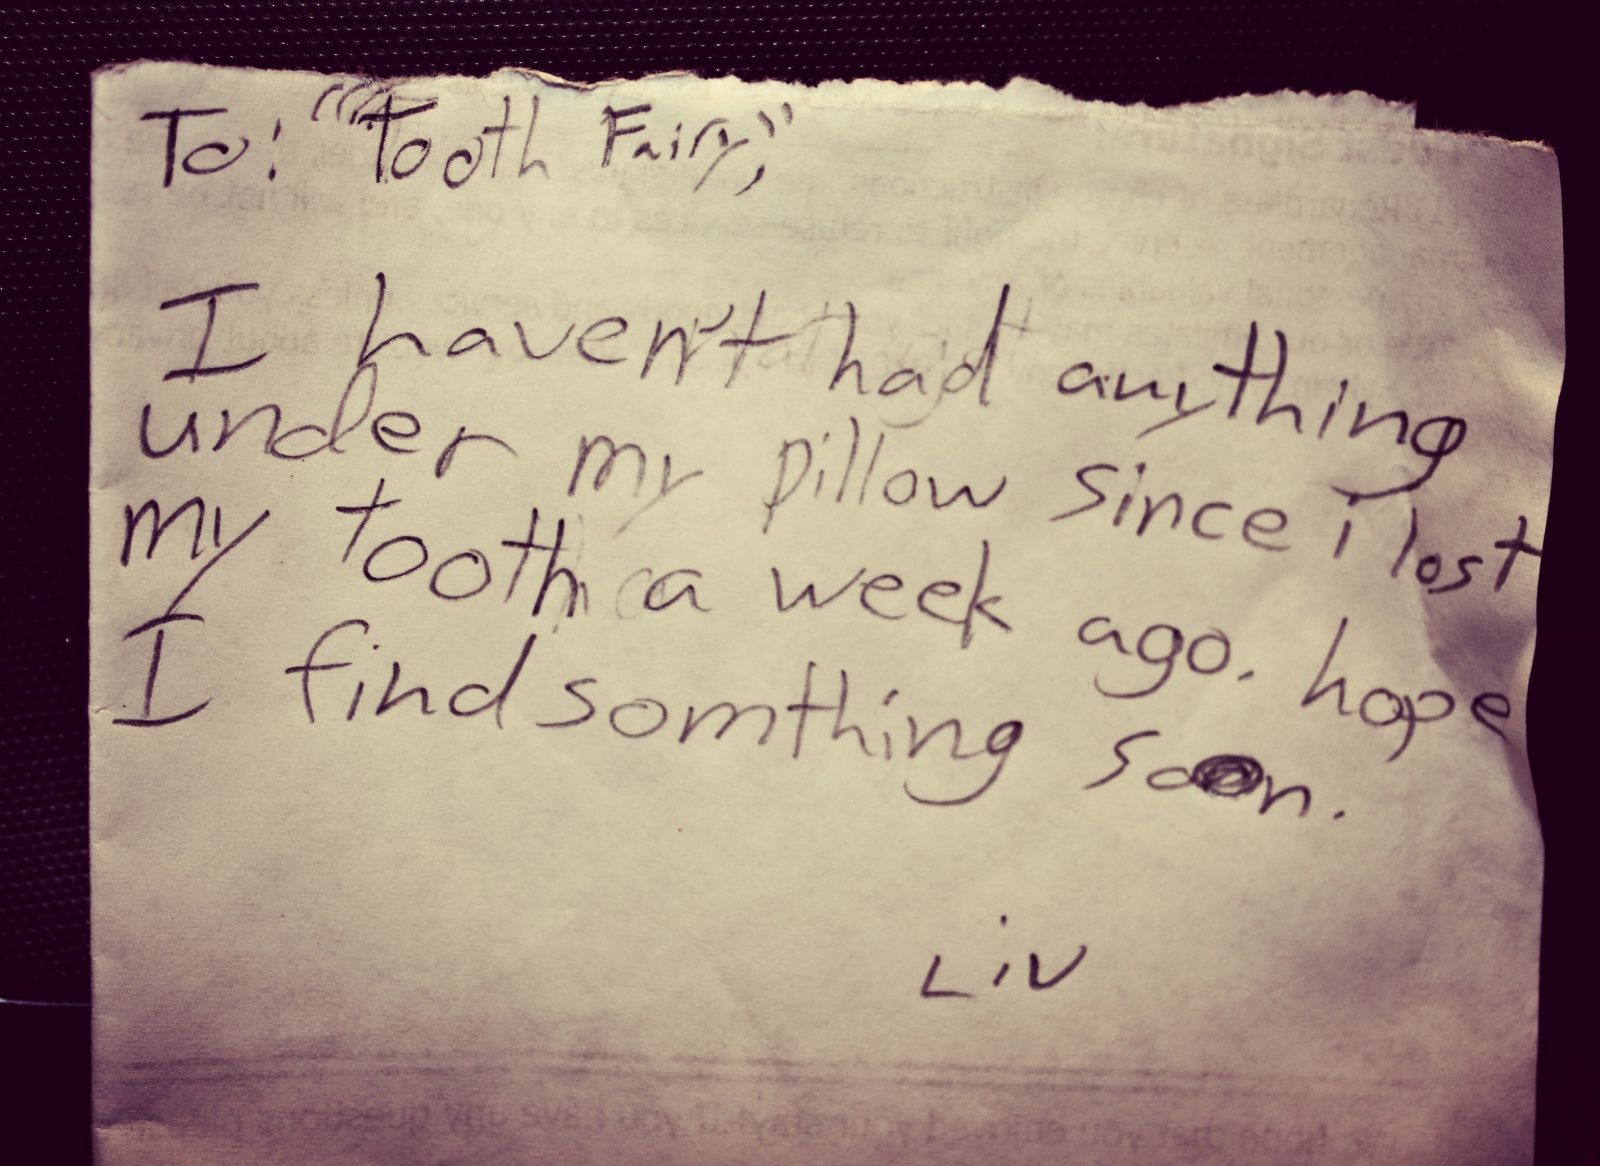 To: "Tooth Fairy,"
I haven't had anything
under my pillow since i lost
my tooth a week ago. hope
I find somthing soon.
Liv